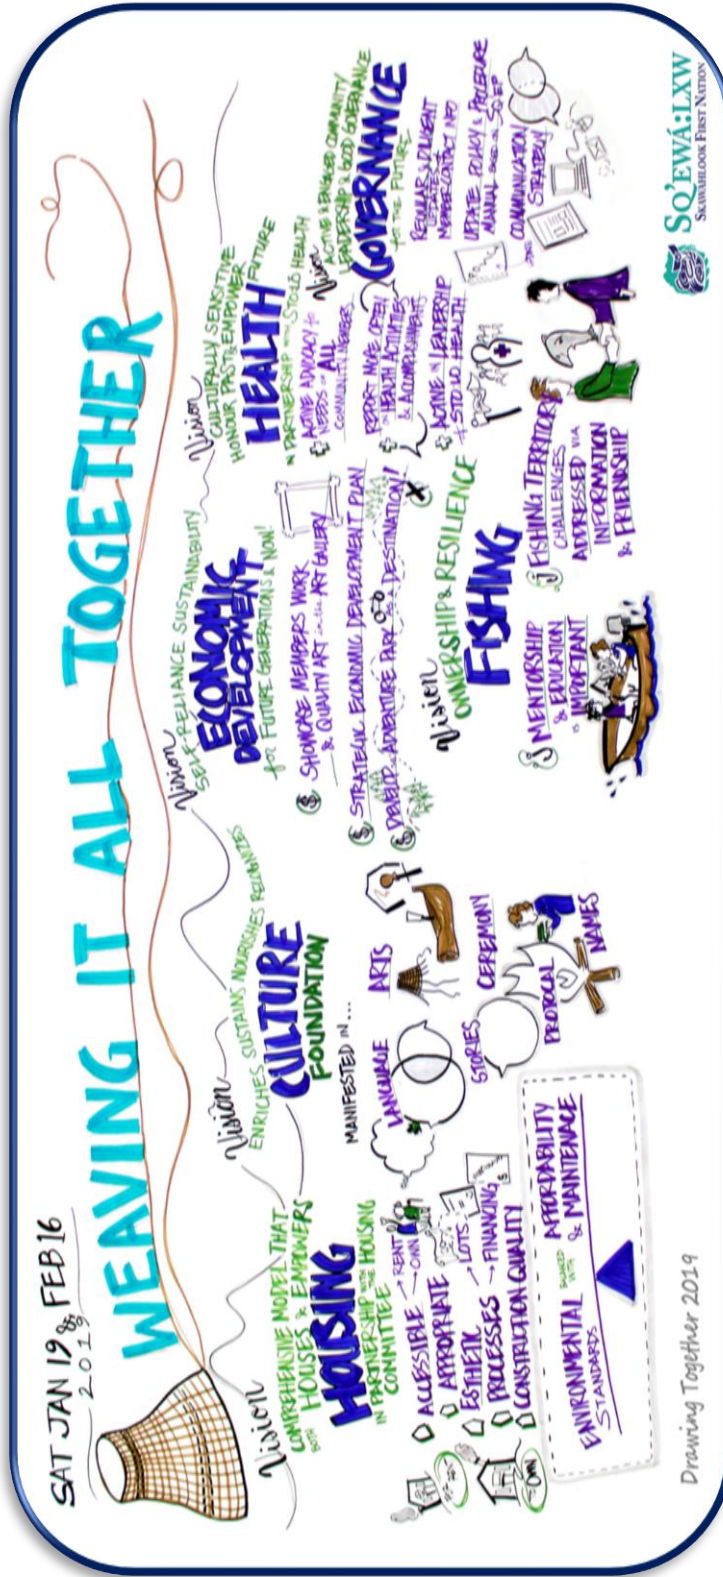 SAT JAN 19 & FEB 16
2019
WEAVING IT ALL TOGETHER
Vision
COMPREHENSIVE MODEL THAT
BOTH HOUSES & EMPOWERS
HOUSING
IN PARTNERSHIP WITH THE HOUSING
COMMITTEE
ACCESSIBLE → RENT
→ OWN
APPROPRIATE
ESTHETIC → LOTS
PROCESSES → FINANCING
CONSTRUCTION QUALITY
OWN
ENVIRONMENTAL
STANDARDS
BALANCED
WITH
AFFORDABILITY
& MAINTENACE
Vision
ENRICHES SUSTAINS NOURISHES RECOGNIZES
CULTURE
FOUNDATION
MANIFESTED IN...
LANGUAGE
ARTS
STORIES
CEREMONY
PROTOCAL
NAMES
Vision
SELF-RELIANCE SUSTAINABILITY
ECONOMIC
DEVELOPMENT
for FUTURE GENERATIONS & NOW!
$ SHOWCASE MEMBERS WORK
& QUALITY ART in the ART GALLERY
$ STRATEGIC ECONOMIC DEVELOPMENT PLAN
$ DEVELOP ADVENTURE PARK as a DESTINATION!
X
Vision
OWNERSHIP & RESILIENCE
FISHING
MENTORSHIP
& EDUCATION
IS IMPORTANT
FISHING TERRITORY
CHALLENGES
ADDRESSED VIA
INFORMATION
& FRIENDSHIP
Vision
CULTURALLY SENSITIVE
HONOUR PAST & EMPOWER
HEALTH FUTURE
IN PARTNERSHIP WITH STO:LO HEALTH
ACTIVE ADVOCACY to
NEEDS of ALL
COMMUNITY MEMBERS
REPORT MORE OFTEN
on HEALTH ACTIVITIES
& ACCOMPLISHMENTS
ACTIVE IN LEADERSHIP
STO:LO HEALTH
Vision
ACTIVE & ENGAGED COMMUNITY
LEADERSHIP & GOOD GOVERNANCE
GOVERNANCE
for THE FUTURE
REGULAR & DILIGENT
UPDATES
MEMBER CONTACT INFO
UPDATE POLICY & PROCEDURE
MANUAL
COMMUNICATION
STRATEGY
Drawing Together 2019
SQ'EWÁ:LXW
SKAWAHLOOK FIRST NATION